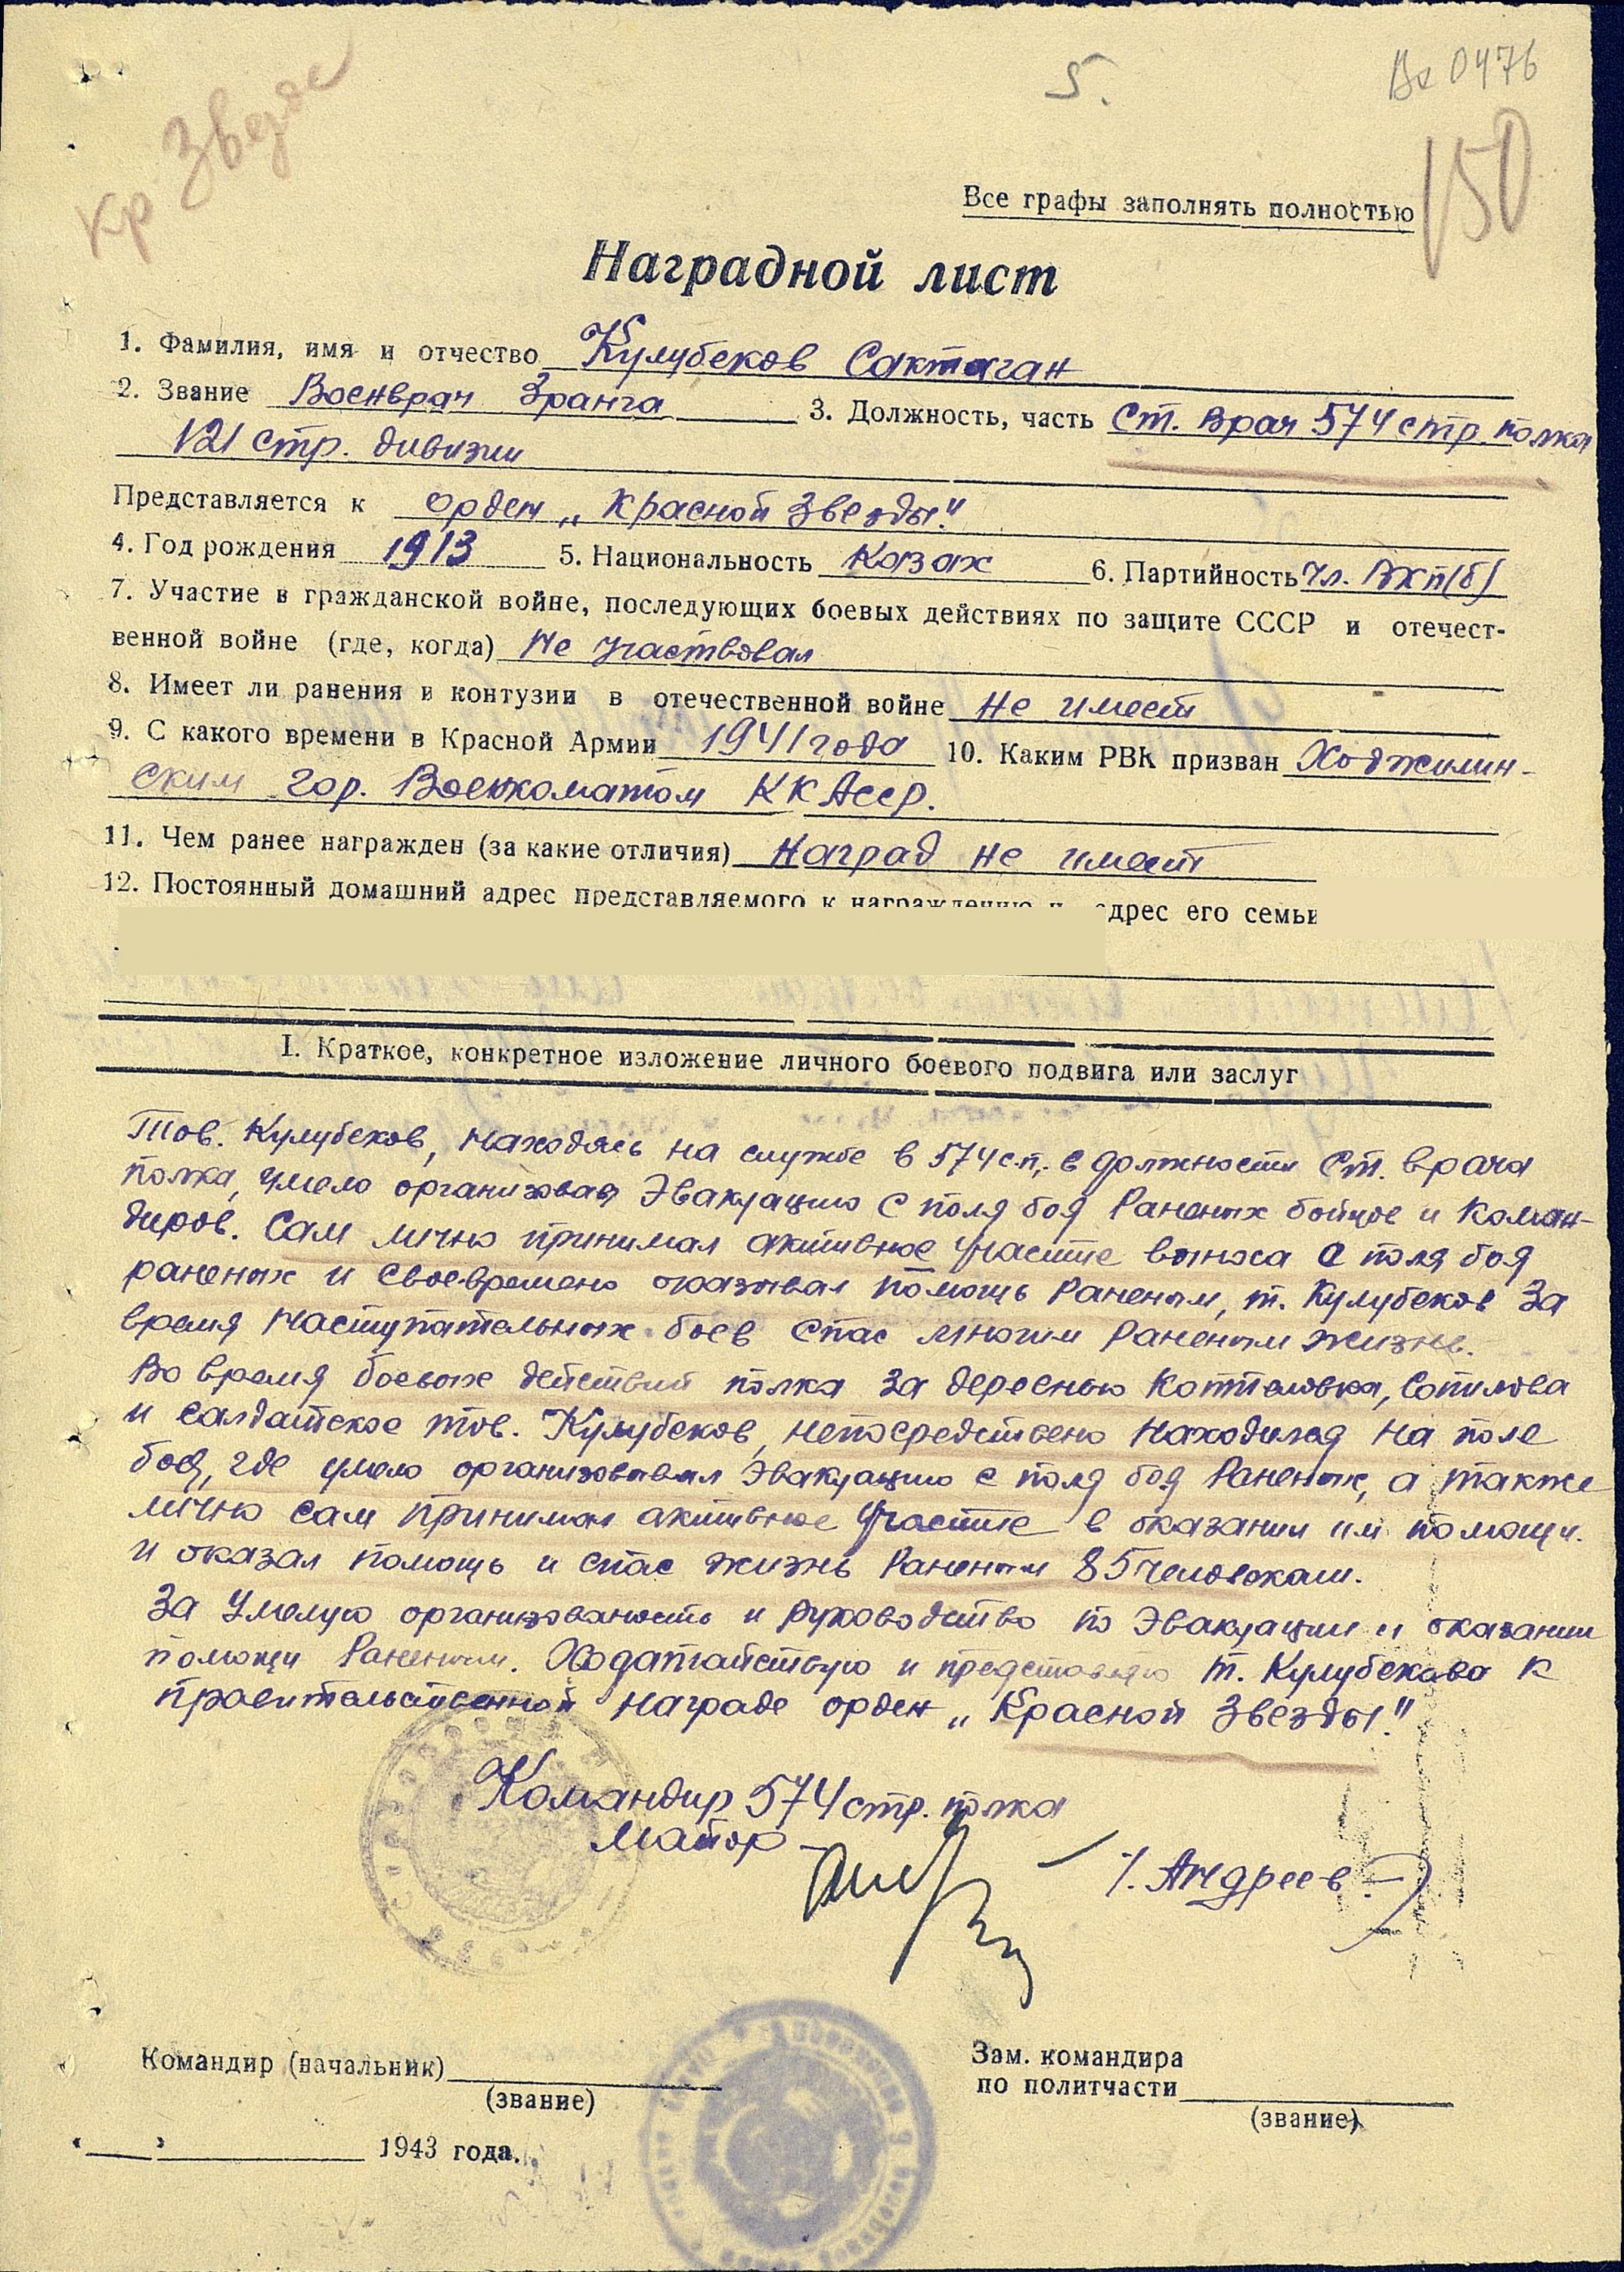 5.
Вх 0476
150
Кр Звезд
Все графы заполнять полностью
Наградной лист
1. Фамилия, имя и отчество Кулубеков Сактаган
2. Звание Военврач 3 ранга 3. Должность, часть Ст. врач 574 стр. полка
121 стр. дивизии
Представляется к орден „Красной Звезды."
4. Год рождения 1913 5. Национальность Казах 6. Партийность Чл. ВКП(б)
7. Участие в гражданской войне, последующих боевых действиях по защите СССР и отечест-
венной войне (где, когда) Не участвовал
8. Имеет ли ранения и контузии в отечественной войне Не имеет
9. С какого времени в Красной Армии 1941 года 10. Каким РВК призван Ходжилин-
ским гор. Военкоматом ККАССР.
11. Чем ранее награжден (за какие отличия) Наград не имеет
12. Постоянный домашний адрес представляемого к награждению и адрес его семьи
I. Краткое, конкретное изложение личного боевого подвига или заслуг
Тов. Кулубеков, находясь на службе в 574 с.п. в должности ст. врача
полка, умело организовал Эвакуацию с поля боя Раненых бойцов и коман-
диров. Сам лично принимал активное участие выноса с поля боя
раненых и своевремено оказывал помощь Раненым, т. Кулубеков За
время наступательных боев спас многим Раненым жизнь.
Во время боевых действий полка за деревню Коптеловка, Сопилова
и Салдатское тов. Кулубеков, непосредствено находился на поле
боя, где умело организовывал Эвакуацию с поля боя Раненых, а также
лично сам принимал активное участие в оказании им помощи.
и оказал помощь и спас жизнь Раненым 85 человекам.
За умелую организованость и руководство по Эвакуации и оказании
помощи Раненым. Ходатайствую и представляю т. Кулубекова к
правительственной награде орден „Красной Звезды."
Командир 574 стр. полка
Майор
/. Андреев-/
Командир (начальник)
(звание)
Зам. командира
по политчасти
(звание)
" " 1943 года.